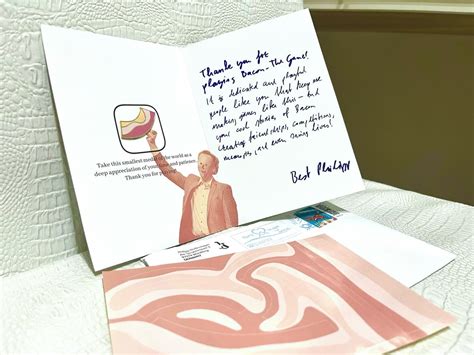 Take this smallest medal in the world as a
deep appreciation of your time and patience.
Thank you for playing!
Thank you for
playing Bacon - The Game!
It is dedicated and playful
people like you that keep me
making games like this - and
your cool stories of Bacon
creating friendships, competitions,
and even saving lives!
Best Philipp